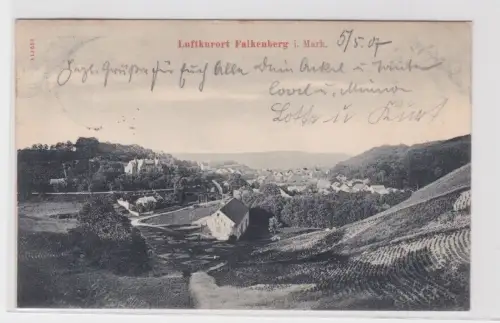 Luftkurort Falkenberg i. Mark. 5/5.07
Herzl. Grüße für Euch Alle Dein Onkel u. Tante
u. Minna
Lotte u Kurt